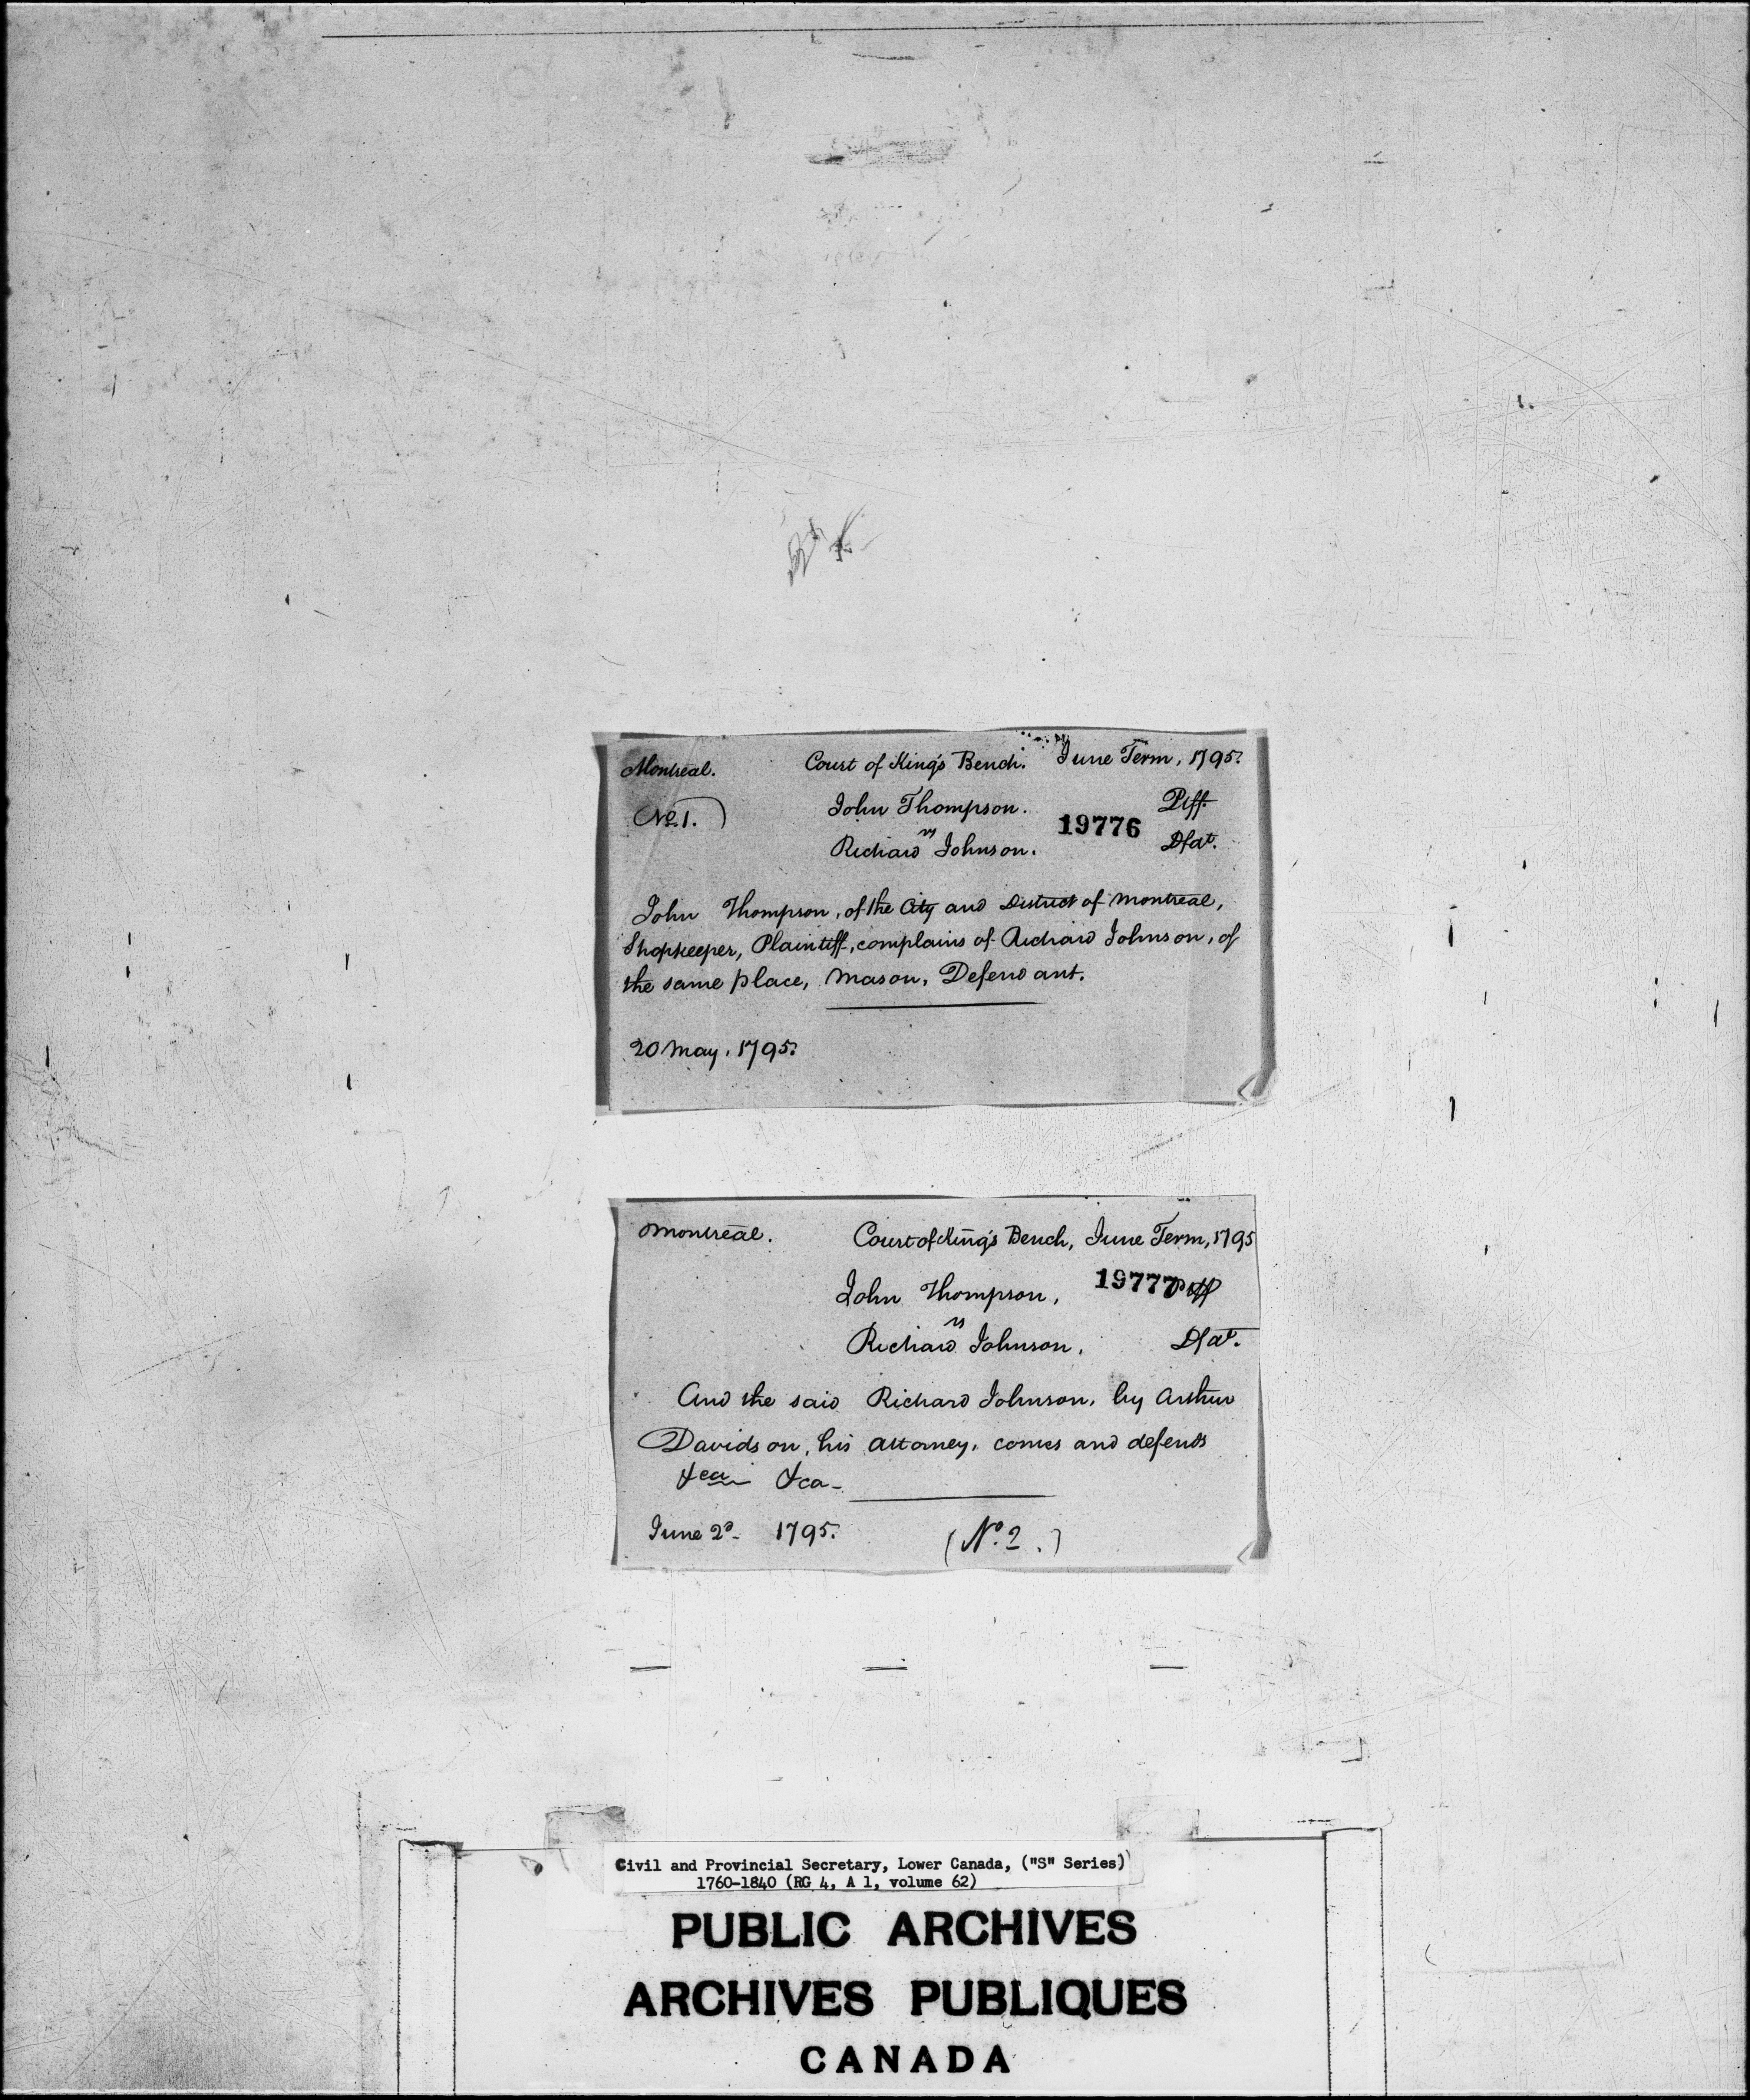 Montreal. Court of King's Bench. June Term, 1795.
No. 1.) John Thompson. Plff.
vs 19776
Richard Johnson. Dfdt.
John Thompson, of the City and District of Montreal,
Shopkeeper, Plaintiff, complains of Richard Johnson, of
the same place, Mason, Defendant.
20 May, 1795.
Montreal. Court of King's Bench, June Term, 1795
John Thompson, 19777 Plff
vs
Richard Johnson, Dfdt.
And the said Richard Johnson, by Arthur
Davidson, his attorney, comes and defends
&ca &ca-
June 2d- 1795. (No. 2.)
Civil and Provincial Secretary, Lower Canada, ("S" Series)
1760-1840 (RG 4, A 1, volume 62)
PUBLIC ARCHIVES
ARCHIVES PUBLIQUES
CANADA